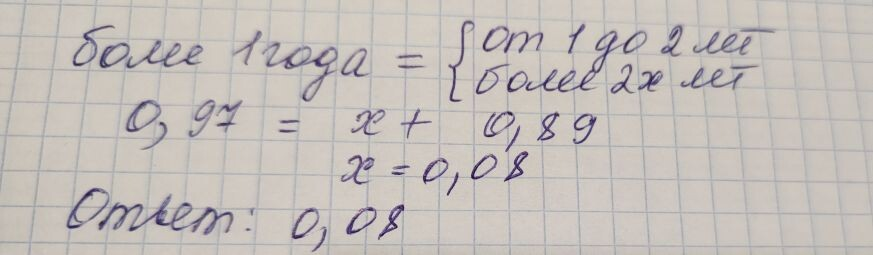 более 1 года = { от 1 до 2 лет
более 2х лет
0,97 = x + 0,89
x = 0,08
Ответ: 0,08